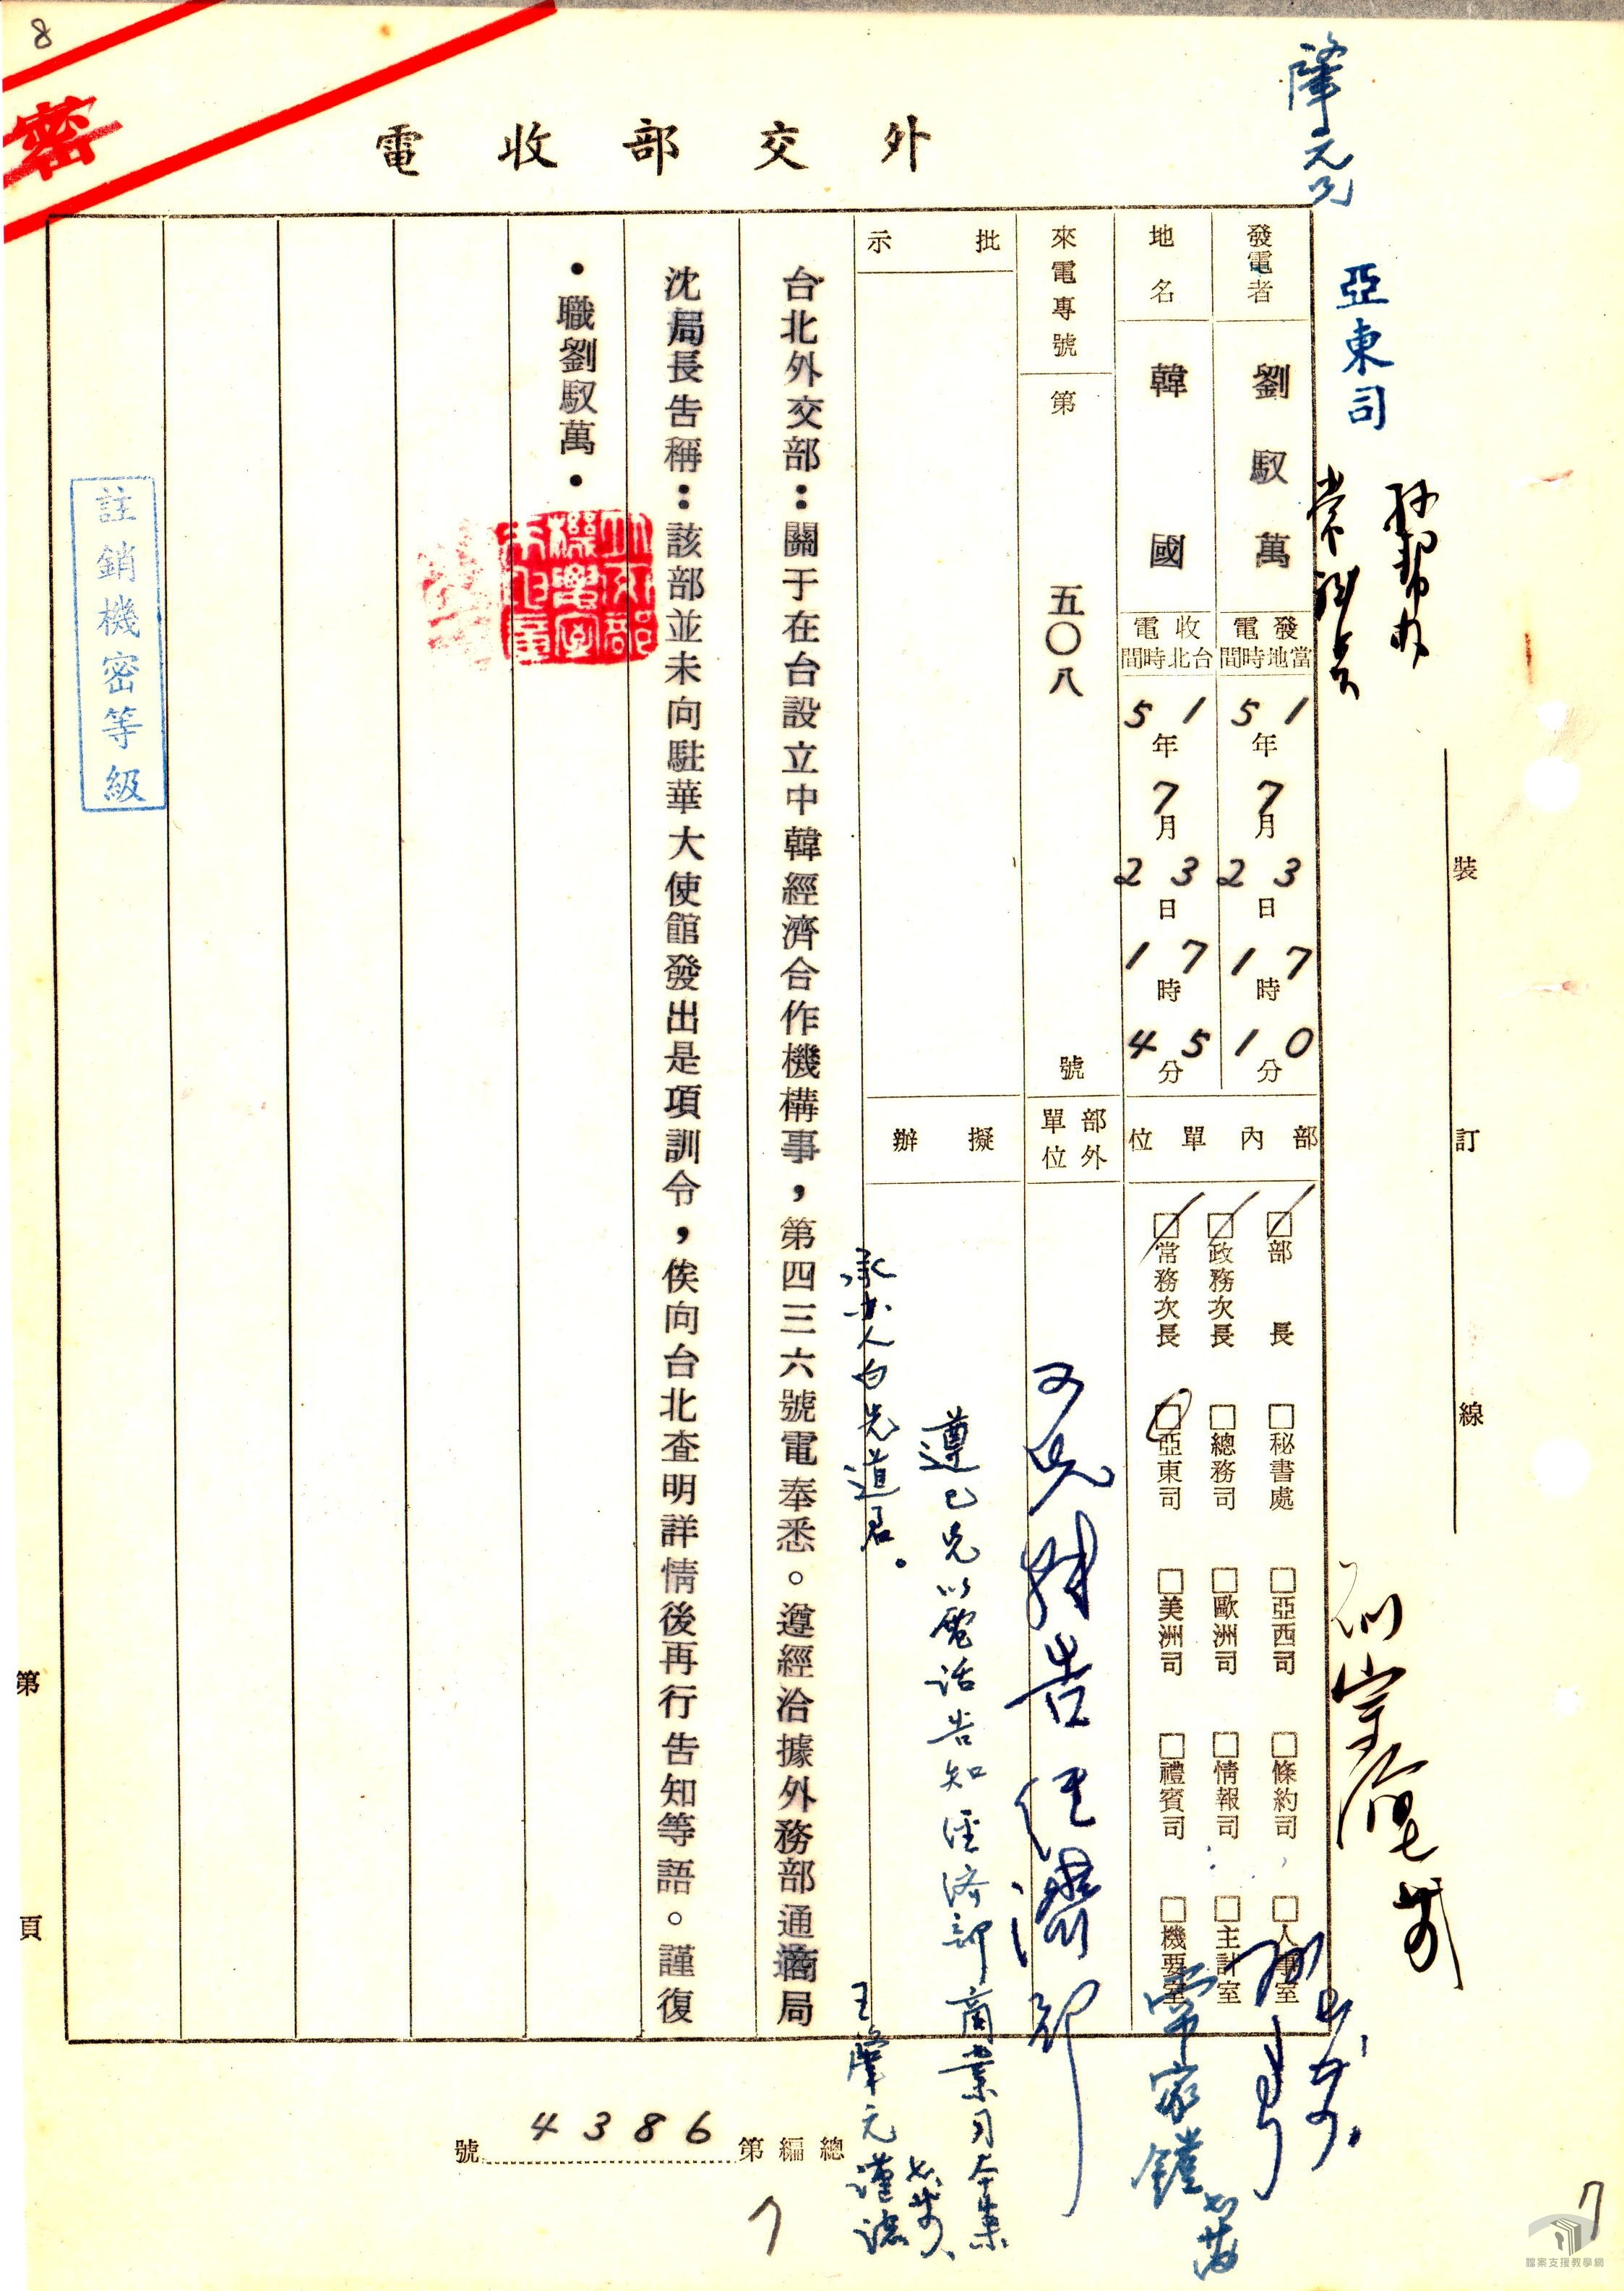 8
密
外交部收電
肇元兄
亞東司
發電者
劉馭萬
發電
當地時間
51年7月23日17時10分
地名
韓國
收電
台北時間
51年7月23日17時45分
來電專號
第五〇八號
部內單位
□部長
□政務次長
□常務次長
□秘書處
□總務司
□亞東司
□亞西司
□歐洲司
□美洲司
□條約司
□情報司
□禮賓司
□人事室
□主計室
□機要室
部外單位
批示
擬辦
可先轉告經濟部
遵已先以電話告知經濟部商業司
承辦人白先道君。
王肇元謹誌
台北外交部：關于在台設立中韓經濟合作機構事，第四三六號電奉悉。遵經洽據外務部通商局
沈局長告稱：該部並未向駐華大使館發出是項訓令，俟向台北查明詳情後再行告知等語。謹復
・職劉馭萬・
註銷機密等級
裝
訂
線
第
頁
總編第4386號
7
7
檔案支援教學網